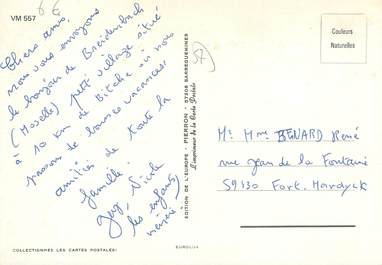 VM 557
Chers amis,
nous vous envoyons
le bonjour de Breidenbach
(Moselle) petit village situé
à 10 km de Bitche où nous
passons de bonnes vacances.
amitiés de toute la
famille.
Guy, Nicole
les enfants
COLLECTIONNEZ LES CARTES POSTALES!
EDITION DE L'EUROPE - PIERRON - 57206 SARREGUEMINES
L'imprimeur de la Carte Postale
EUROLUX
57
Couleurs
Naturelles
Mr Mme BENARD René
rue Jean de la Fontaine
59130 Fort. Mardyck